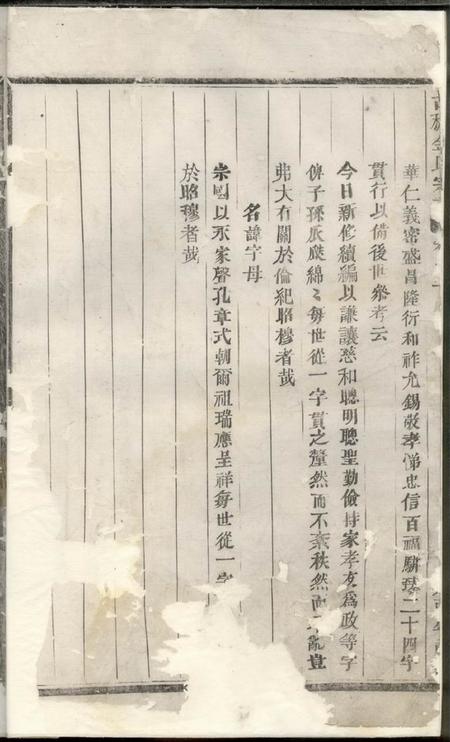 華仁義密盛昌隆衍和祚允錫敬孝悌忠信百福駢臻二十四字
貫行以備後世參考云
今日新修續編以謙讓慈和聰明聽聖勤儉持家孝友爲政等字
俾子孫瓜瓞綿〻每世從一字貫之釐然而不紊秩然而亂豈
弗大有關於倫紀昭穆者哉
名諱字母
宗國以永家聲孔章式朝爾祖瑞應呈祥每世從一字
於昭穆者哉